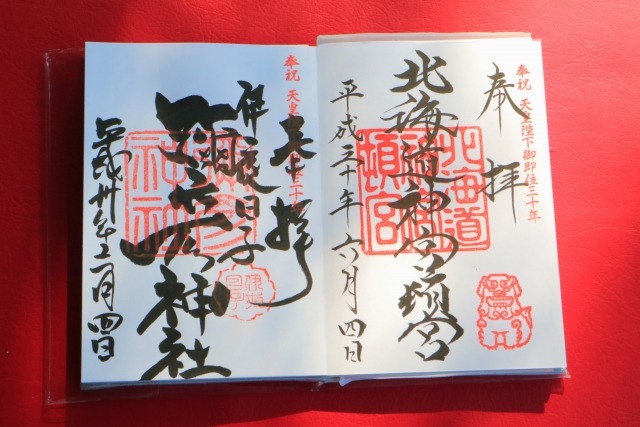 奉祝 天皇陛下御即位三十年
奉拝
北海道神宮頓宮
北海道
頓宮
平成三十年六月四日
奉祝 天皇
三十年
奉拝
伊夜日子
神社
平成卅年六月四日